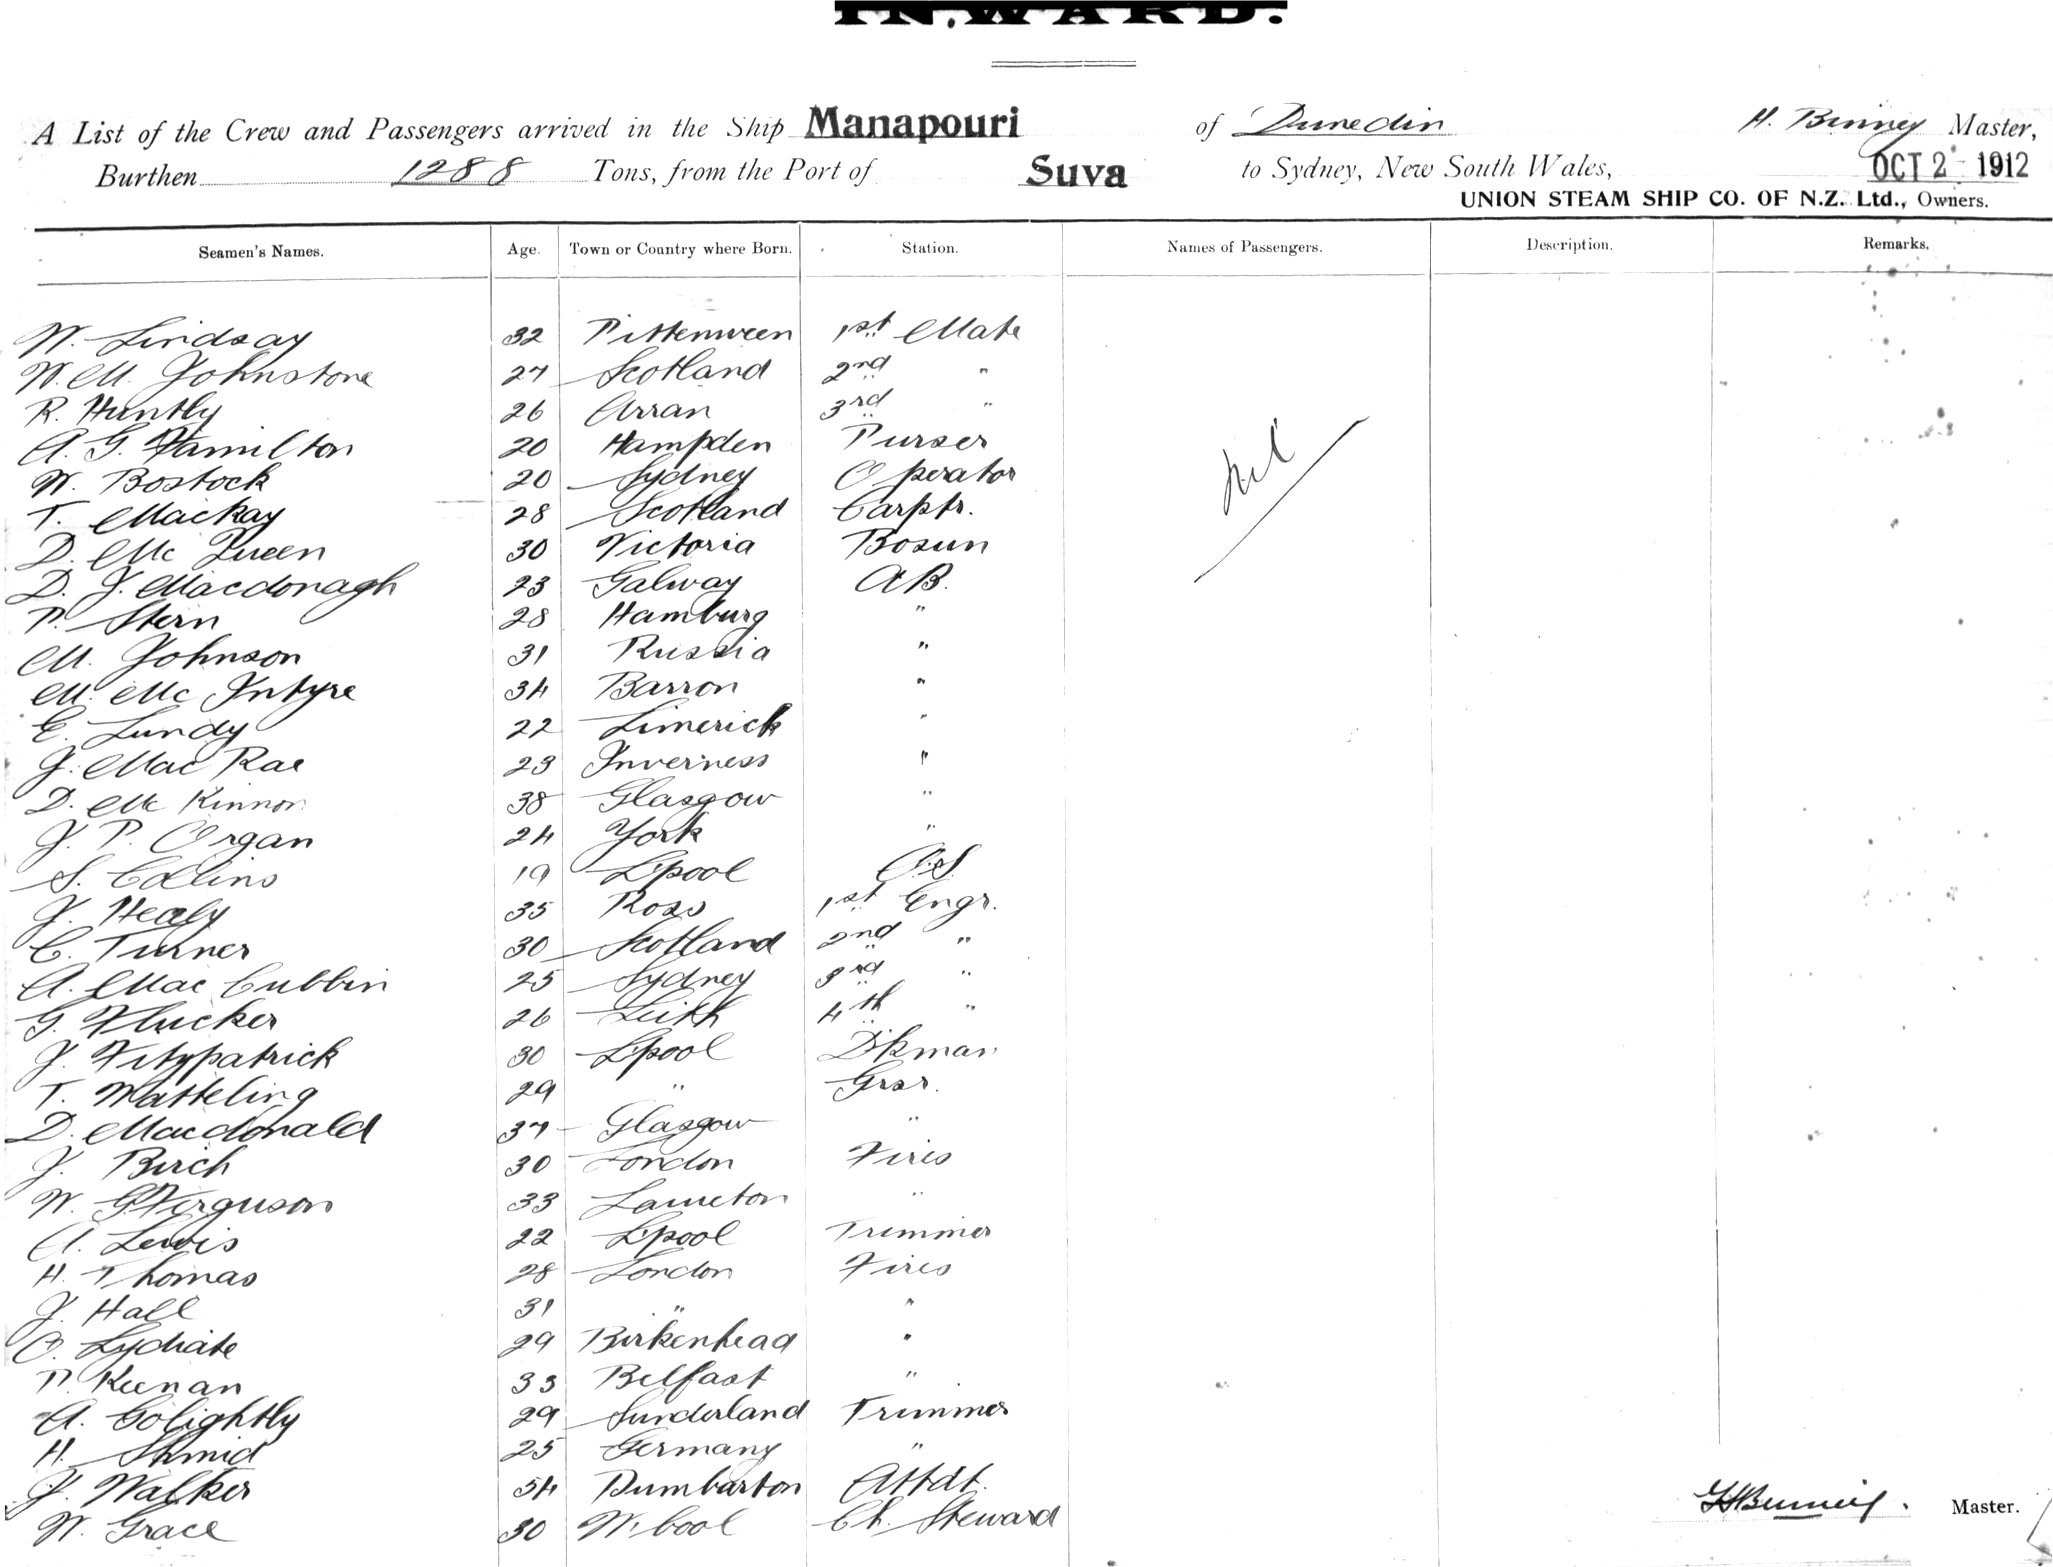 INWARD.
A List of the Crew and Passengers arrived in the Ship Manapouri of Dunedin H. Binney Master,
Burthen 1288 Tons, from the Port of Suva to Sydney, New South Wales, OCT 2 1912
UNION STEAM SHIP CO. OF N.Z. Ltd., Owners.
Seamen's Names. Age. Town or Country where Born. Station. Names of Passengers. Description. Remarks.
W. Lindsay 32 Pittenween 1st Mate
W. M. Johnstone 27 Scotland 2nd "
R. Huntly 26 Arran 3rd "
A. G. Hamilton 20 Hampden Purser
Nil
W. Bostock 20 Sydney Operator
T. Mackay 28 Scotland Carptr.
D. Mc Queen 30 Victoria Bosun
D. J. Macdonagh 23 Galway AB.
P. Stern 28 Hamburg "
M. Johnson 31 Russia "
M. Mc Intyre 34 Barron "
E. Lundy 22 Limerick "
J. Mac Rae 23 Inverness "
D. Mc Kinnon 38 Glasgow "
J. P. Organ 24 York "
S. Collins 19 L'pool O.S.
J. Healy 35 Ross 1st Engr.
C. Turner 30 Scotland 2nd "
A. Mac Cubbin 25 Sydney 3rd "
G. Flucker 26 Leith 4th "
J. Fitzpatrick 30 L'pool D'kman
T. Matteling 29 " Grsr.
D. Macdonald 37 Glasgow "
J. Birch 30 London Fires
W. G. Ferguson 33 "
A. Lewis 22 L'pool Trimmer
H. Thomas 28 London Fires
J. Hall 31 " "
O. Lydiate 29 Birkenhead "
P. Keenan 33 Belfast "
A. Golightly 29 Sunderland Trimmer
H. Shmid 25 Germany "
J. Walker 54 Dumbarton Attdt.
W. Grace 30 W'bool Ch. Steward
H Binney. Master.